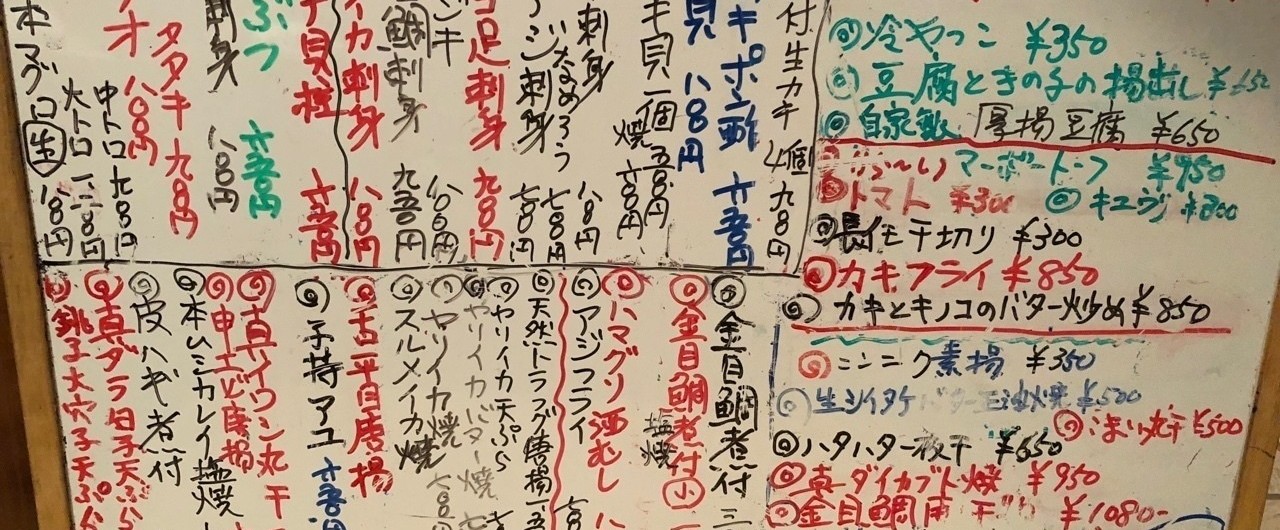 付生カキ 4個 九八〇円
キポン酢 六五〇円
貝 八八〇円
キ貝 一個 五八〇円
焼 六八〇円
刺身 八八〇円
なめろう 七八〇円
ジ刺身 七八〇円
足刺身 九八〇円
鯛刺身 九五〇円
イカ刺身 八八〇円
貝柱 六五〇円
ぶつ 六五〇円
刺身 八八〇円
タタキ 九八〇円
オ 八八〇円
中トロ 九八〇円
大トロ
本マグロ 生
冷やっこ ¥350
豆腐ときの子の揚出し ¥650
自家製 厚揚豆腐 ¥650
マーボートーフ ¥950
トマト ¥300
キュウリ ¥300
長芋千切り ¥300
カキフライ ¥850
カキとキノコのバター炒め ¥850
ニンニク素揚 ¥350
生シイタケバター正油焼 ¥500
こまい丸干 ¥500
ハタハタ一夜干 ¥650
真ダイカブト焼 ¥950
金目鯛 ¥1080-
金目鯛煮付
金目鯛煮付 小
塩焼
ハマグリ酒むし
アジフライ
天然トラフグ唐揚
ヤリイカ天ぷら
ヤリイカバター焼
ヤリイカ焼
スルメイカ焼
舌平目唐揚
子持アユ
真イワシ丸干
甲エビ唐揚
本ひミカレイ塩焼
皮ハギ煮付
真ダラ白子天ぷら
銚子大穴子天ぷら